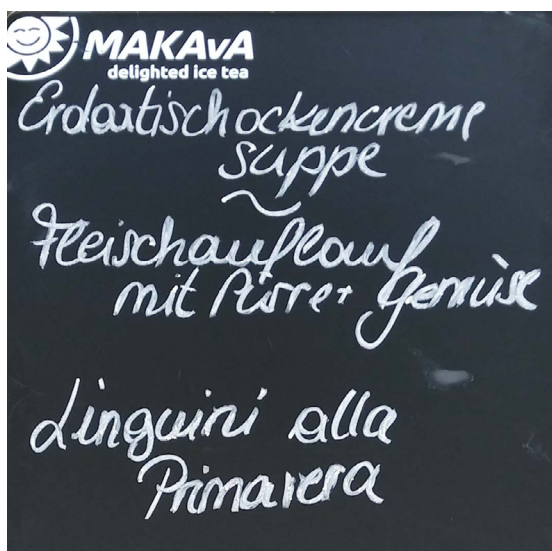 MAKAvA
delighted ice tea
Erdartischockencreme
suppe
~
Fleischauflauf
mit Pürre + Gemüse
Linguini alla
Primavera